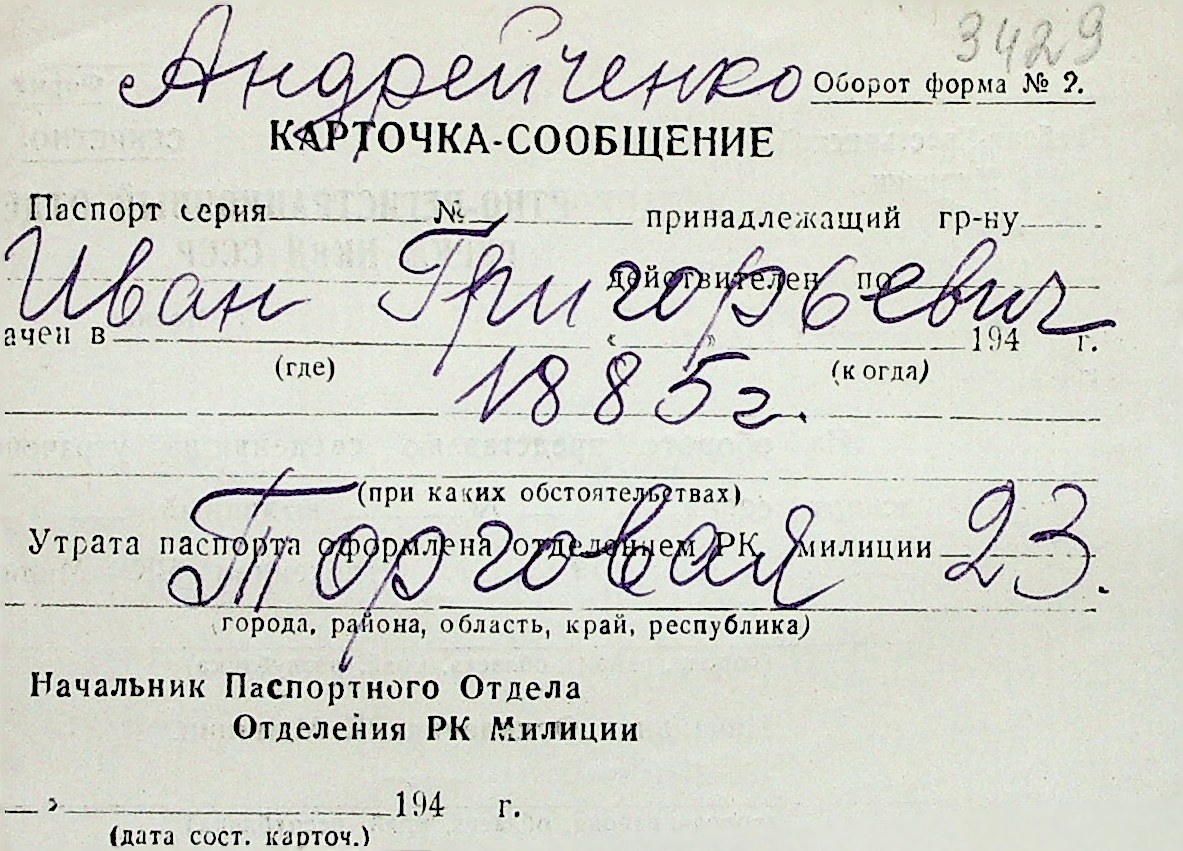 3429
Андрейченко Оборот форма № 2.
КАРТОЧКА-СООБЩЕНИЕ
Паспорт серия № принадлежащий гр-ну
действителен по
Иван Григорьевич
ачен в « » 194 г.
(где) (когда)
1885г.
(при каких обстоятельствах)
Утрата паспорта оформлена отделением РК милиции
Торговая 23.
города, района, область, край, республика)
Начальник Паспортного Отдела
Отделения РК Милиции
» 194 г.
(дата сост. карточ.)